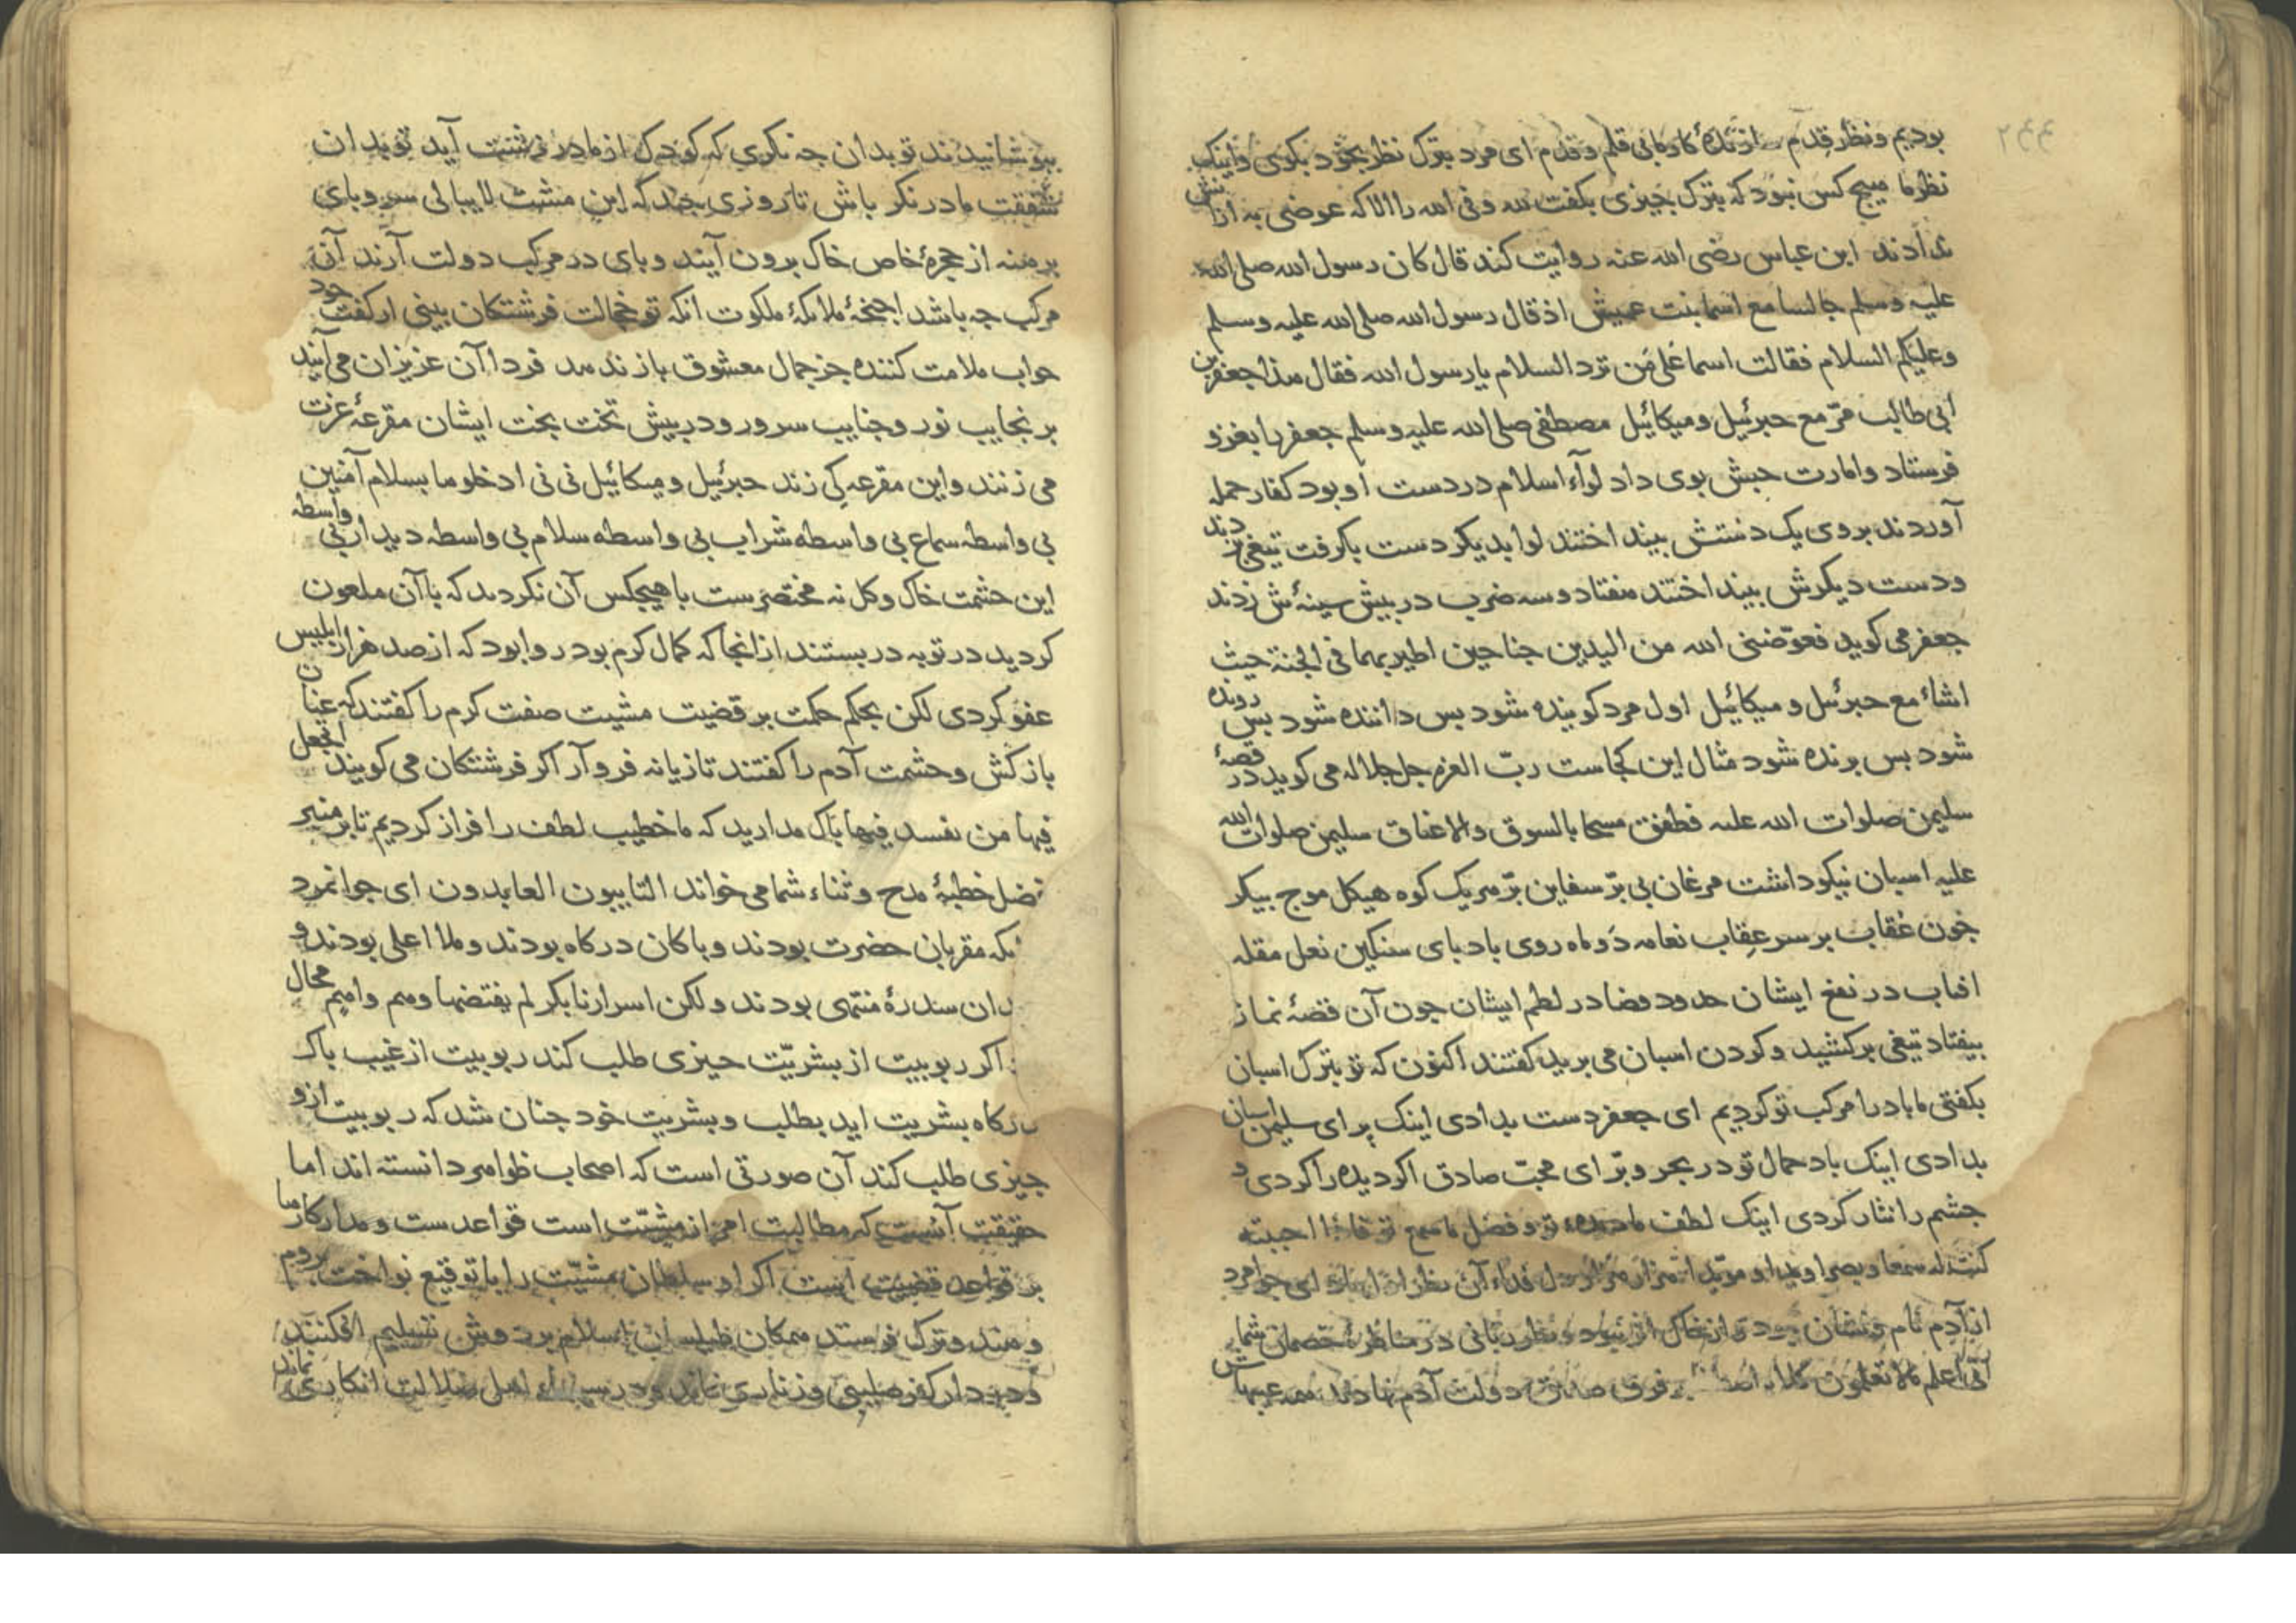 ۲۴۴
بودیم و نظر قدم کارمانی قلم و قدم ای مرد بترک نظر بخود بکوی و اینک
نظر ما هیچ کس نبود که بترک جیزی بکفت لله و فی الله را الا که عوضی به از آنش
ندادند ابن عباس رضی الله عنه روایت کند قال کان رسول الله صلی الله
علیه وسلم جالسا مع اسما بنت عمیش اذ قال رسول الله صلی الله علیه وسلم
وعلیکم السلام فقالت اسما علی من ترد السلام یا رسول الله فقال هذا جعفر بن
ابی طالب مرّ مع جبرئیل و میکائیل مصطفی صلی الله علیه وسلم جعفر را بغزو
فرستاد و امارت حبش بوی داد لوآء اسلام در دست او بود کفار حمله
آوردند بر وی یک دستش بینداختند لوا بدیکر دست بکرفت تیغی زدند
و دست دیکرش بینداختند هفتاد و سه ضرب در بیش سینۀ ش زدند
جعفر می کوید فعوّضنی الله من الیدین جناحین اطیر بهما فی الجنة حیث
اشاء مع جبرئیل و میکائیل اول مرد کوینده شود بس داننده شود بس رونده
شود بس برنده شود مثال این کجاست ربّ العزه جل جلاله می کوید در قصۀ
سلیمن صلوات الله علیه فطفق مسحا بالسوق والاعناق سلیمن صلوات الله
علیه اسبان نیکو داشت مرغان بی برّ سفاین برّ هریک کوه هیکل موج بیکر
جون عقاب بر سر عقاب نعامه دو ماه روی باد بای سنکین نعل مقله
افتاب در نفع ایشان خدود فضا در لطم ایشان جون آن قصۀ نماز
بیفتاد تیغی برکشید و کردن اسبان می برید کفتند اکنون که تو بترک اسبان
بکفتی ما باد را مرکب تو کردیم ای جعفر دست بدادی اینک بر ای سلیمن اسبان
بدادی اینک باد حمال تو در بحر و برّ ای محبّ صادق اکر دیده را کردی و
جشم را نثار کردی اینک لطف ما دیدۀ تو و فضل ما سمع تو فاذا احببته
کنت له سمعا و بصرا و یدا و مؤیدا هزار هزار دل فداء آن نظر ای جوامرد
از آدم نام و نشان نبود و از خاک اثر نبود و نظر ربّانی در مناظرۀ خصمان شما
انّی اعلم ما لا تعلمون دولت آدم نهادند همه عیبهاش
ببوشانیدند تو بدان جه نکری که کودک از مادر زشت آید تو بدان
شفقت مادر نکر باش تا روزی جند که این مشت لاابالی سر و بای
برهنه از حجرۀ خاص خاک برون آیند و بای در مرکب دولت آرند آن
مرکب جه باشد اجنحۀ ملائکۀ ملکوت انکه تو خجالت فرشتکان بینی از کفت خود
جواب ملامت کننده جز جمال معشوق باز ندهد فردا آن عزیزان می آیند
بر نجایب نور و جنایب سرور و در بیش تخت بخت ایشان مقرعۀ عزت
می زنند و این مقرعه کی زند جبرئیل و میکائیل نی نی ادخلوها بسلام آمنین
بی واسطه سماع بی واسطه شراب بی واسطه سلام بی واسطه دیدار بی واسطه
این حشمت خاک و کل نه مختصرست با هیچکس آن نکردند که با آن ملعون
کردید در توبه در بستند از انجا که کمال کرم بود روا بود که از صد هزار ابلیس
عفو کردی لکن بحکم حکمت بر قضیت مشیت صفت کرم را کفتند که عنان
باز کش و حشمت آدم را کفتند تازیانه فرو آر اکر فرشتکان می کویند اتجعل
فیها من یفسد فیها باک مدارید که ما خطیب لطف را فراز کردیم تا بر منبر
فضل خطبۀ مدح و ثناء شما می خواند التایبون العابدون ای جوانمرد
مقربان حضرت بودند و باکان درکاه بودند و ملا اعلی بودند و
سدرۀ منتهی بودند و لکن اسرارنا بکر لم یفتضها وهم واهم محال
اکر ربوبیت از بشریّت جیزی طلب کند ربوبیت از غیب باک
درکاه بشریت اید بطلب و بشریت خود جنان شد که ربوبیت ازو
جیزی طلب کند آن صورتی است که اصحاب ظواهر دانسته اند اما
حقیقت آنست که مطالبت امر از مشیّت است قواعدست و مدار کارها
بر قواعد قضیت اینست اکر او سلطان مشیّت را با توقیع نواخت بروم
و هند و ترک فرستد همکان طیلسان اسلام بر دوش تسلیم افکنند
و در دار کفر صلیبی و زناری نماند و در اهل ضلالت انکاری نماند